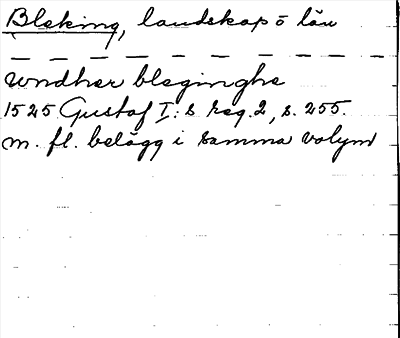 Bleking, landskap o län
— — — — — — — — — —
Wndher bleginghe
1525 Gustaf I:s reg. 2, s. 255.
m. fl. belägg i samma volym